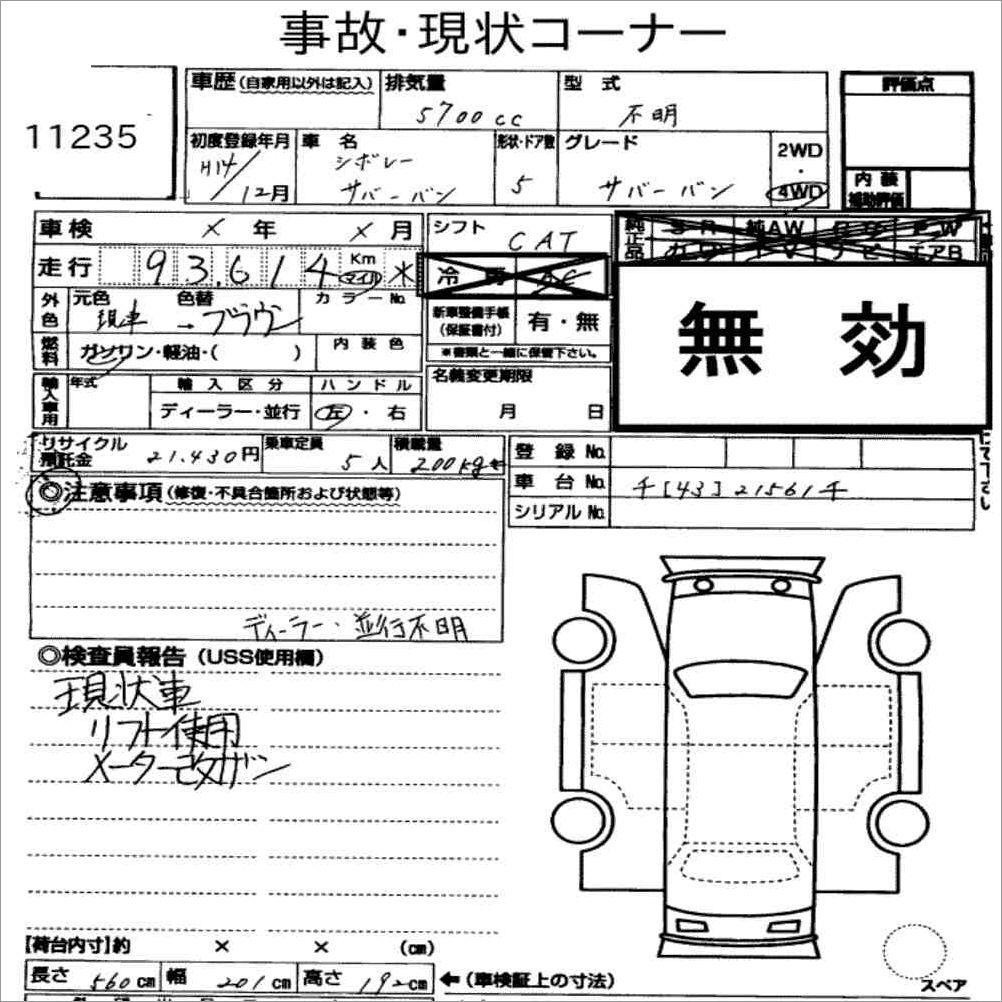 事故・現状コーナー
11235
車歴(自家用以外は記入)
排気量
5700cc
型式
不明
評価点
初度登録年月
H14/12月
車名
シボレー
サバーバン
形状・ドア数
5
グレード
サバーバン
2WD
・
4WD
内装
補助評価
車検 × 年 × 月
シフト
CAT
純正品
S R 純AW
カワ T V ナビ エアB
走行 93,614 Km マイル *
冷房 AC
外色
元色 現車
色替 → ブラウン
カラーNo.
新車整備手帳
(保証書付)
有・無
※書類と一緒に保管下さい。
無効
燃料
ガソリン・軽油・( )
内装色
名義変更期限
月 日
輸入車用
年式
輸入区分
ディーラー・並行
ハンドル
左・右
リサイクル
預託金
21.430円
乗車定員
5人
積載量
200kg
登録No.
車台No.
千[43]21561千
シリアルNo.
◎注意事項(修復・不具合箇所および状態等)
ディーラー・並行不明
◎検査員報告(USS使用欄)
現状車
リフト使用
メーター改ザン
【荷台内寸】約 × × (cm)
長さ 560cm 幅 201cm 高さ 192cm ←(車検証上の寸法)
スペア